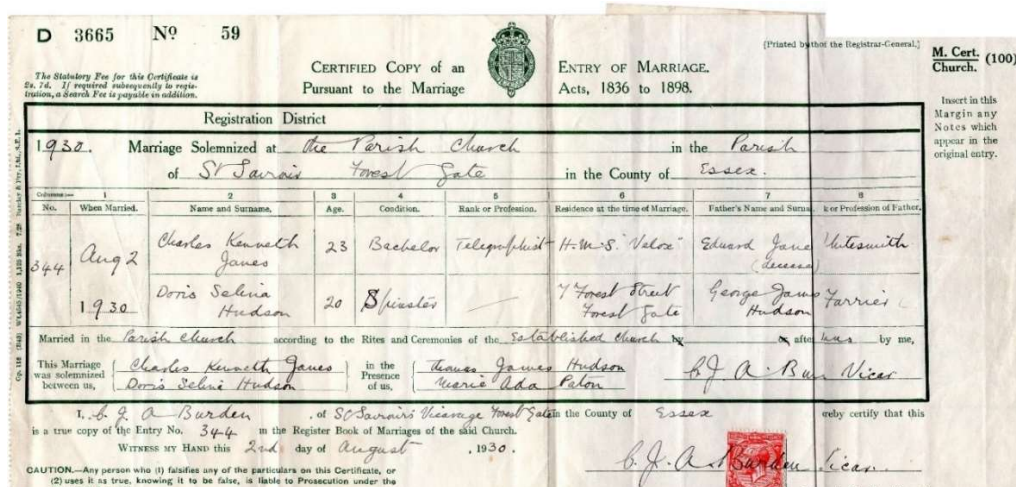 D 3665 Nº 59
[Printed by the Registrar-General.]
M. Cert. (100)
Church.
The Statutory Fee for this Certificate is
2s. 7d. If required subsequently to regis-
tration, a Search Fee is payable in addition.
CERTIFIED COPY of an ENTRY OF MARRIAGE.
Pursuant to the Marriage Acts, 1836 to 1898.
Insert in this
Margin any
Notes which
appear in the
original entry.
Registration District
1930. Marriage Solemnized at the Parish Church in the Parish
of St Saviour Forest Gate in the County of Essex.
Columns:— 1 2 3 4 5 6 7 8
No. When Married. Name and Surname. Age. Condition. Rank or Profession. Residence at the time of Marriage. Father's Name and Surna k or Profession of Father.
344 Aug 2 1930 Charles Kenneth Janes 23 Bachelor Telegraphist H.M.S. "Velox" Edward Jane (decease)
Doris Selina Hudson 20 Spinster 7 Forest Street Forest Gate George James Hudson Farrier
Married in the Parish Church according to the Rites and Ceremonies of the Established Church by or after by me,
This Marriage was solemnized between us, Charles Kenneth Janes Doris Selina Hudson in the Presence of us, James Hudson Marie Ada C J A Bur Vicar
I, C J A Burden, of St Saviour's Vicarage Forest Gate in the County of Essex ereby certify that this
is a true copy of the Entry No. 344 in the Register Book of Marriages of the said Church.
WITNESS MY HAND this 2nd day of August, 1930.
C. J. A Burden Vicar.
CAUTION.—Any person who (1) falsifies any of the particulars on this Certificate, or
(2) uses it as true, knowing it to be false, is liable to Prosecution under the